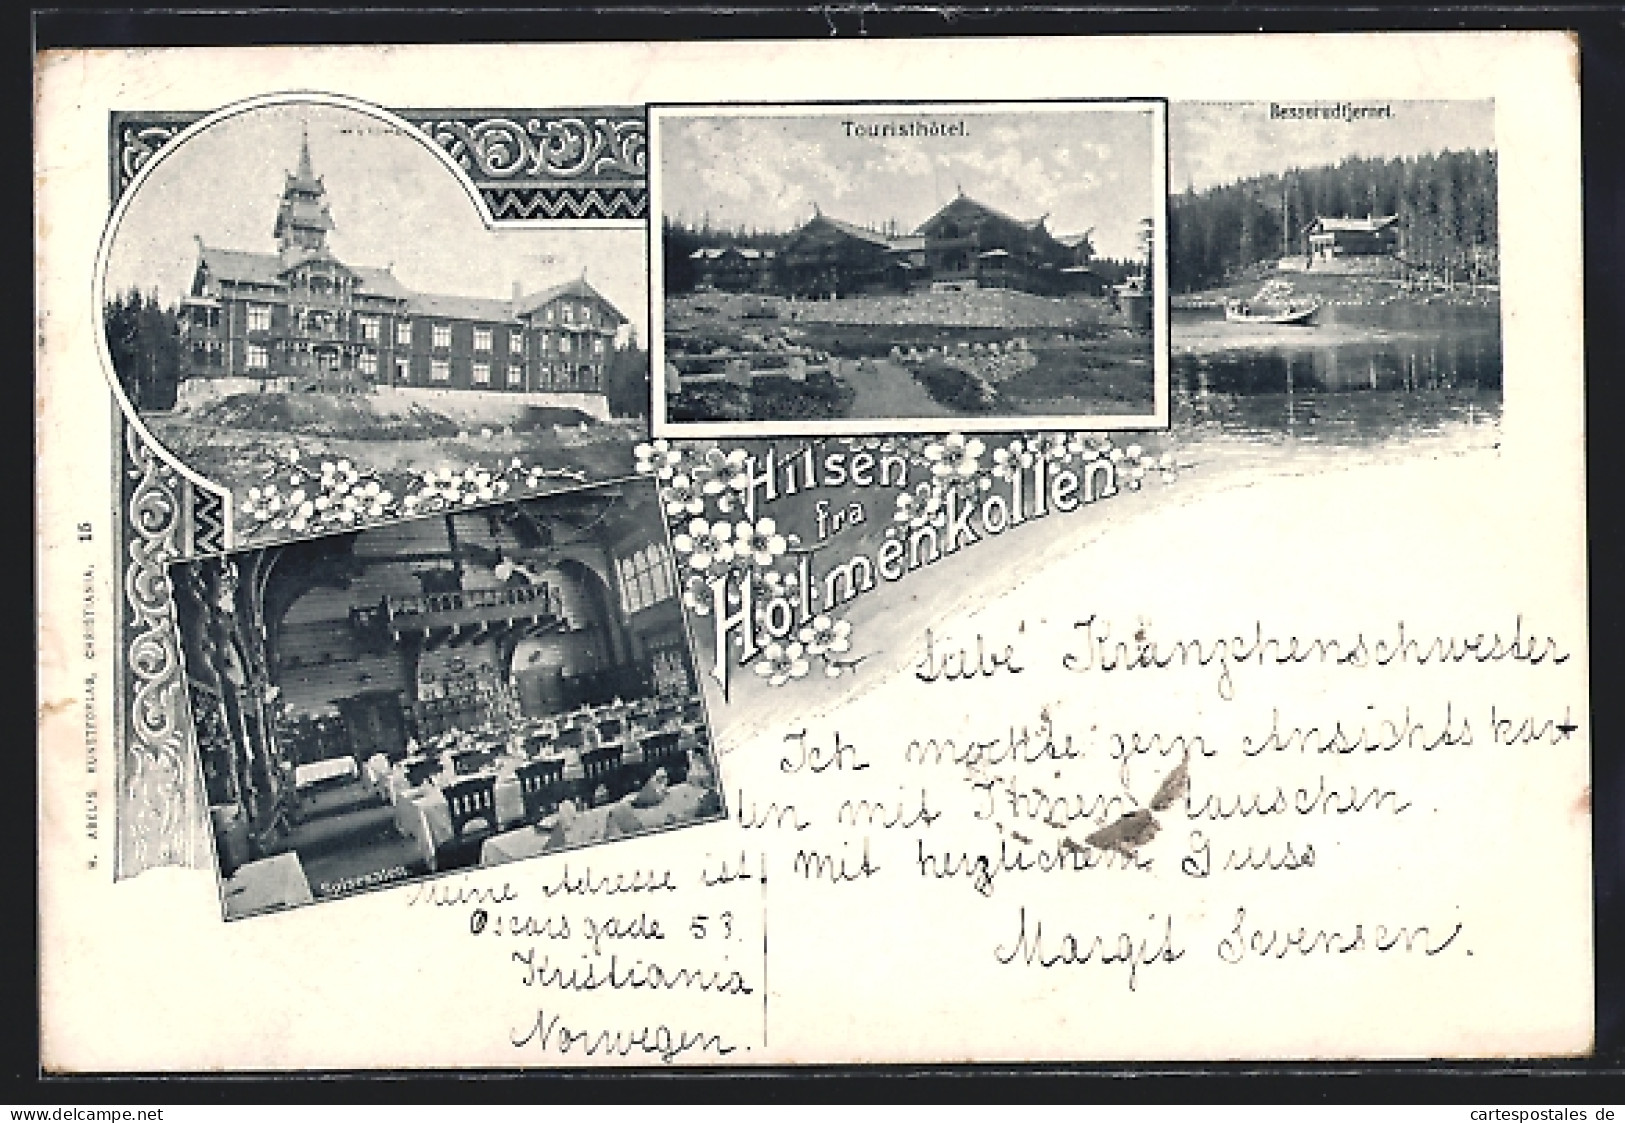 Touristhôtel.
Besserudtjernet.
Hilsen
fra
Holmenkollen.
N. ABEL'S KUNSTFORLAG, CHRISTIANIA. 15
Spisesalon.
Liebe Kränzchenschwester
Ich möchte gern Ansichtskart
en mit Ihnen tauschen.
Mit herzlichem Gruss
Margit Sevensen.
Meine Adresse ist
Oscarsgade 53.
Kristiania
Norwegen.
Einkaufszettel
cartespostales de